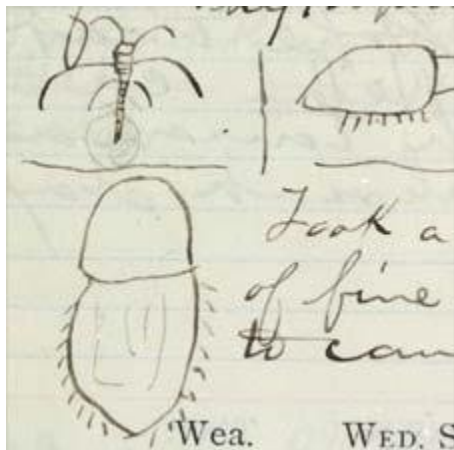 Took a
of fine
to cam
Wea. WED. S